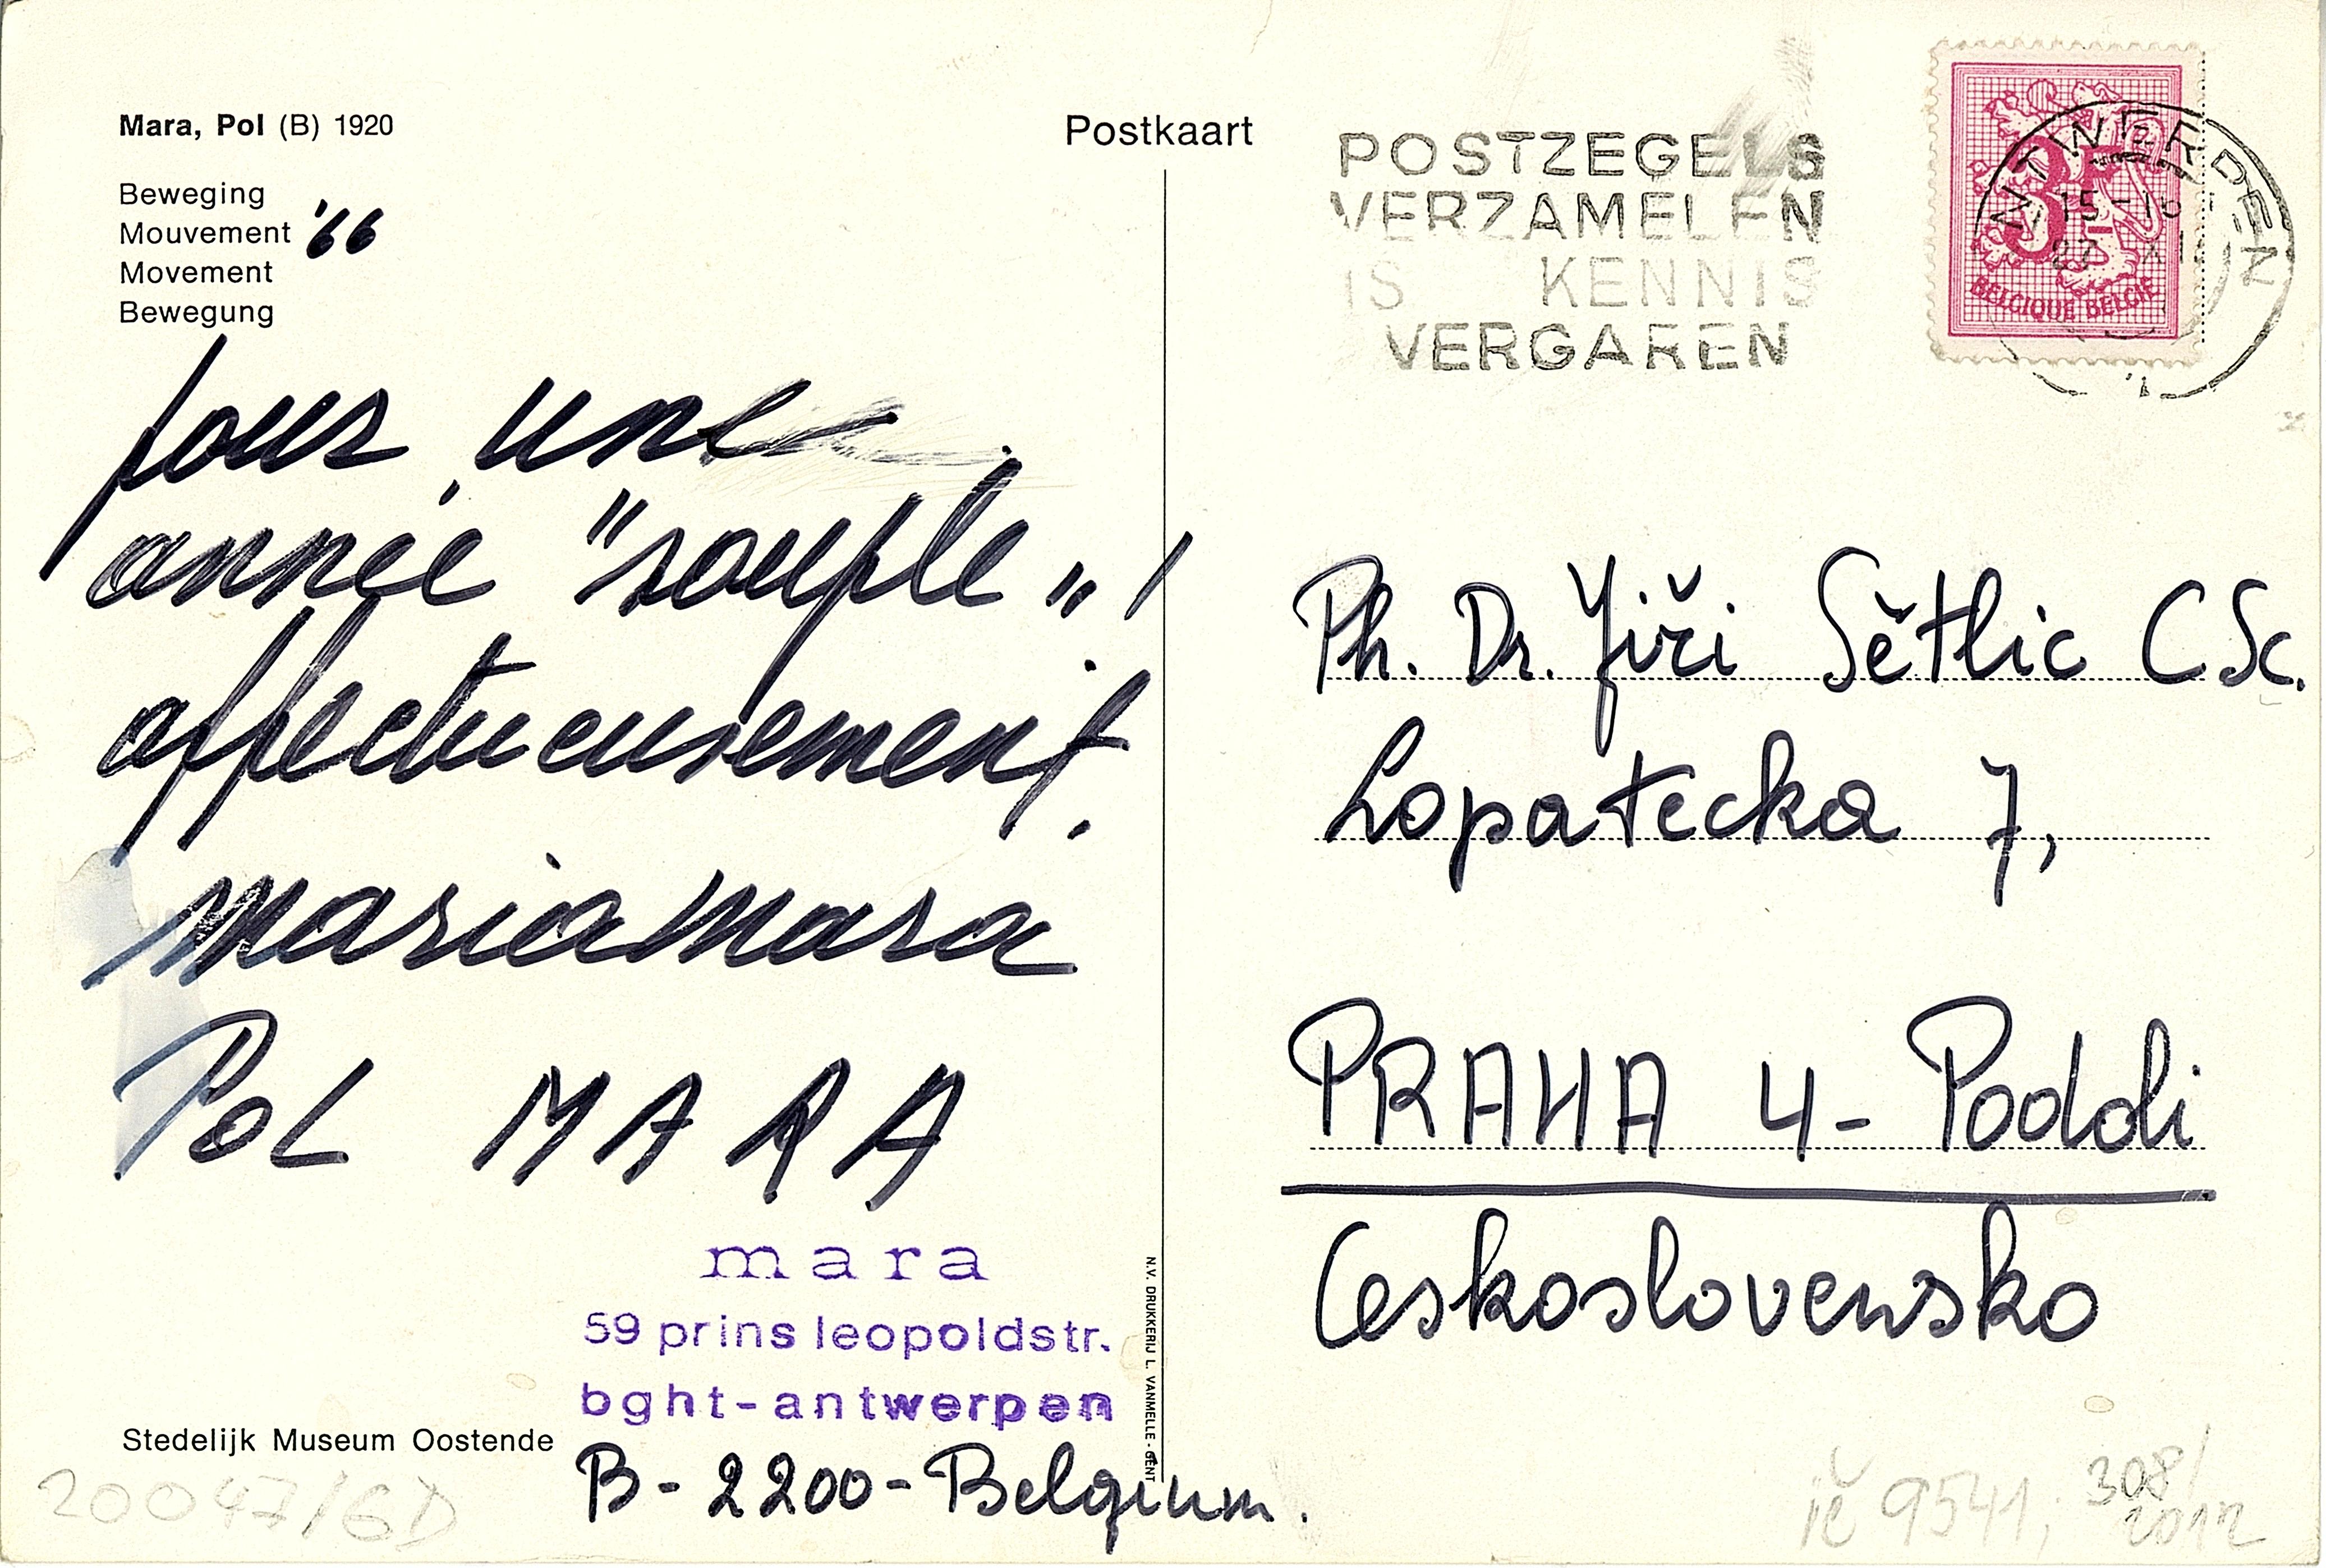 Mara, Pol (B) 1920
Beweging
Mouvement '66
Movement
Bewegung
pour une
année "souple" !
affectueusement.
mariamara
PoL MARA
mara
59 prins leopoldstr.
bght-antwerpen
B-2200-Belgium.
Stedelijk Museum Oostende
20047/GD
N.V. DRUKKERIJ L. VANMELLE - GENT
Postkaart
POSTZEGELS
VERZAMELEN
IS KENNIS
VERGAREN
ANTWERPEN
15-16
27 XII
3F
BELGIQUE BELGIË
Ph. Dr. Jiři Sětlic CSc.
Lopatecka 7,
PRAHA 4- Podoli
Ceskoslovensko
ič 9541; 308/
2012